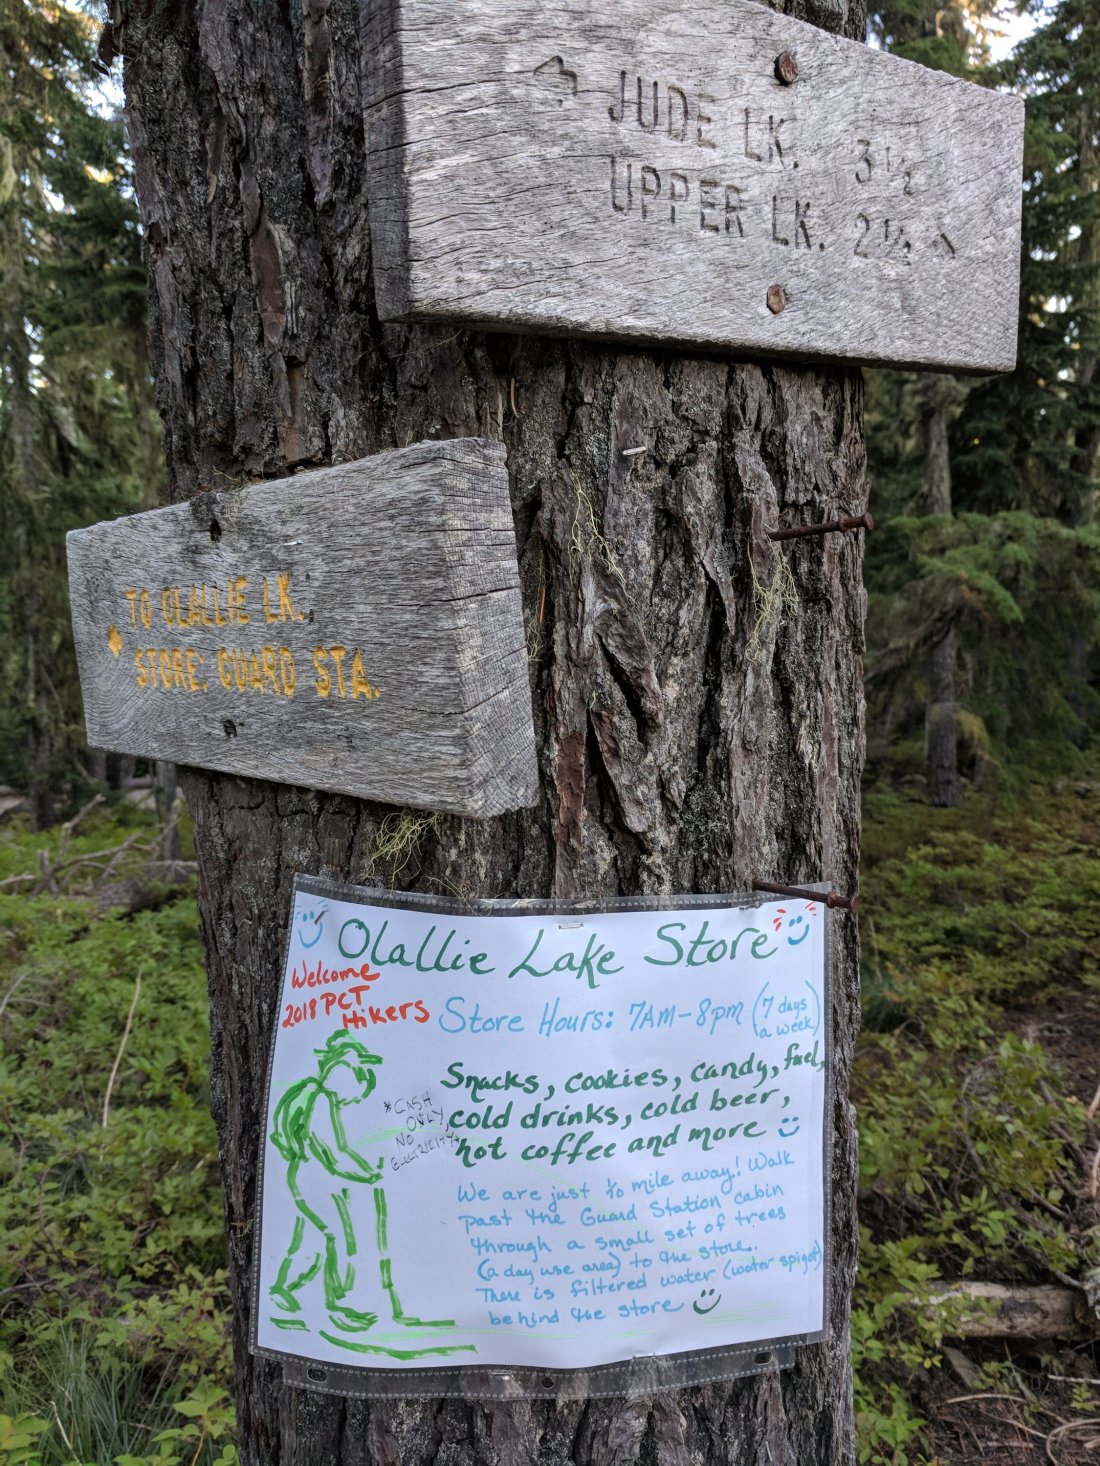 JUDE LK. 3 1/2
UPPER LK. 2 1/2
TO OLALLIE LK.
STORE; GUARD STA.
Olallie Lake Store
Welcome
2018 PCT
Hikers
Store Hours: 7AM-8pm (7 days
a week)
Snacks, cookies, candy, fuel,
cold drinks, cold beer,
hot coffee and more
*CASH
ONLY,
NO
ELECTRICITY*
We are just 1/10 mile away! Walk
past the Guard Station cabin
through a small set of trees
(a day use area) to the store.
There is filtered water (water spigot)
behind the store